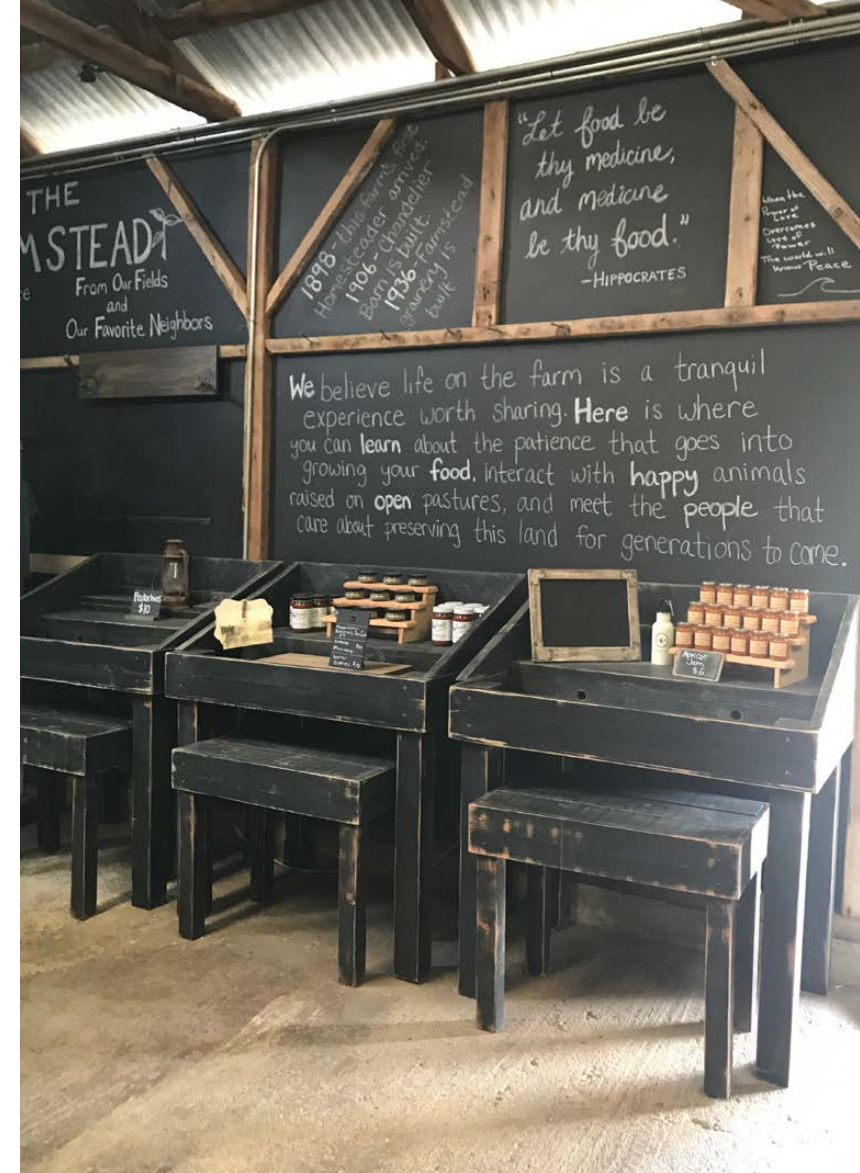 THE
MSTEAD
From Our Fields
and
Our Favorite Neighbors
1898 - this farm's first
Homesteader arrived.
1906 - Chandelier
Barn is built.
1936 - Farmstead
grainery is
built
"Let food be
thy medicine,
and medicine
be thy food."
-HIPPOCRATES
When the
Power of
Love
Overcomes
Love of
Power
The world will
know Peace
We believe life on the farm is a tranquil
experience worth sharing. Here is where
you can learn about the patience that goes into
growing your food, interact with happy animals
raised on open pastures, and meet the people that
care about preserving this land for generations to come.
Pistachios
$10
Apricot
Jam
$6